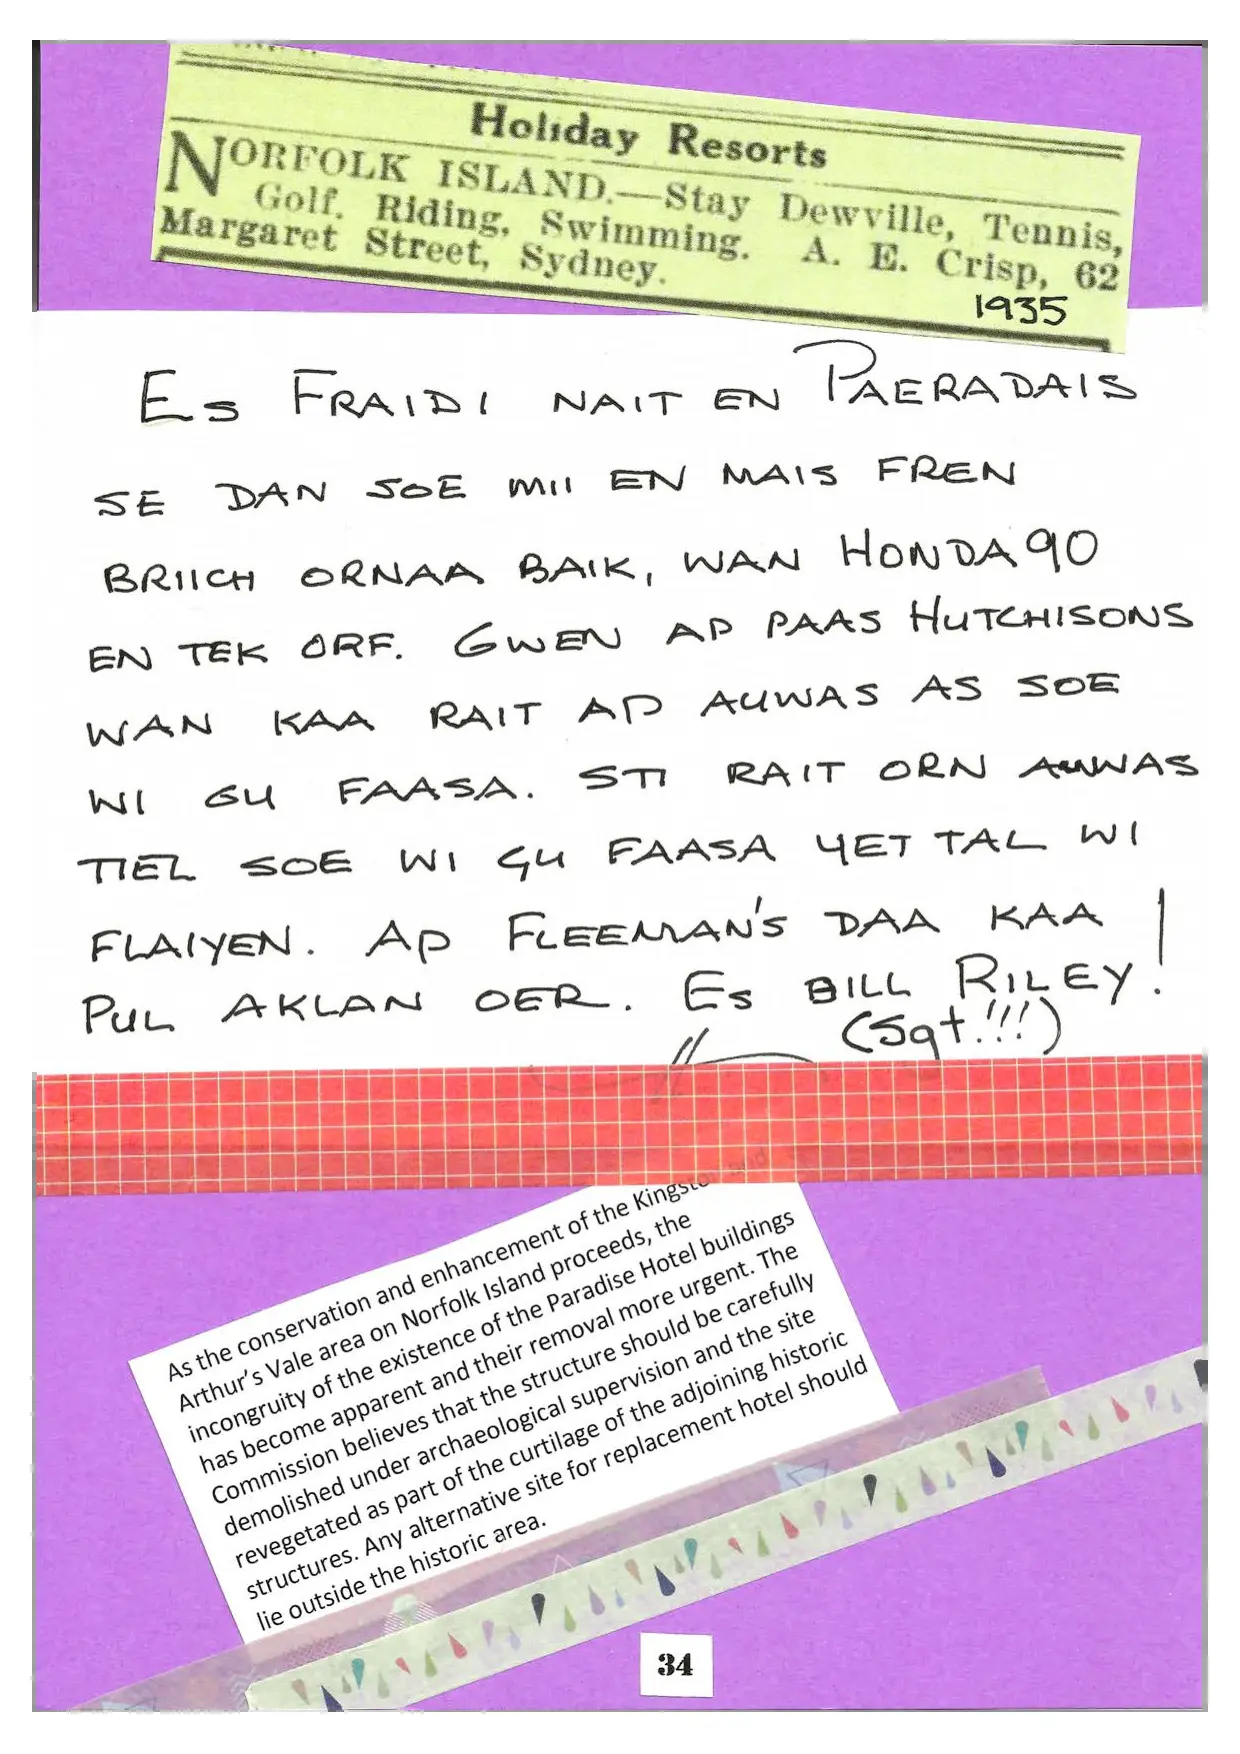 Holiday Resorts
NORFOLK ISLAND.—Stay Dewville, Tennis,
Golf, Riding, Swimming. A. E. Crisp, 62
Margaret Street, Sydney.
1935
ES FRAIDI NAIT EN PAERADAIS
SE DAN SOE MII EN MAIS FREN
BRIICH ORNAA BAIK, WAN HONDA 90
EN TEK ORF. GWEN AP PAAS HUTCHISONS
WAN KAA RAIT AP AUWAS AS SOE
WI GU FAASA. STI RAIT ORN AUWAS
TIEL SOE WI GU FAASA YET TAL WI
FLAIYEN. AP FLEEMAN'S DAA KAA
PUL AKLAN OER. ES BILL RILEY!
(Sgt.!!!)
As the conservation and enhancement of the Kingston and
Arthur's Vale area on Norfolk Island proceeds, the
incongruity of the existence of the Paradise Hotel buildings
has become apparent and their removal more urgent. The
Commission believes that the structure should be carefully
demolished under archaeological supervision and the site
revegetated as part of the curtilage of the adjoining historic
structures. Any alternative site for replacement hotel should
lie outside the historic area.
34